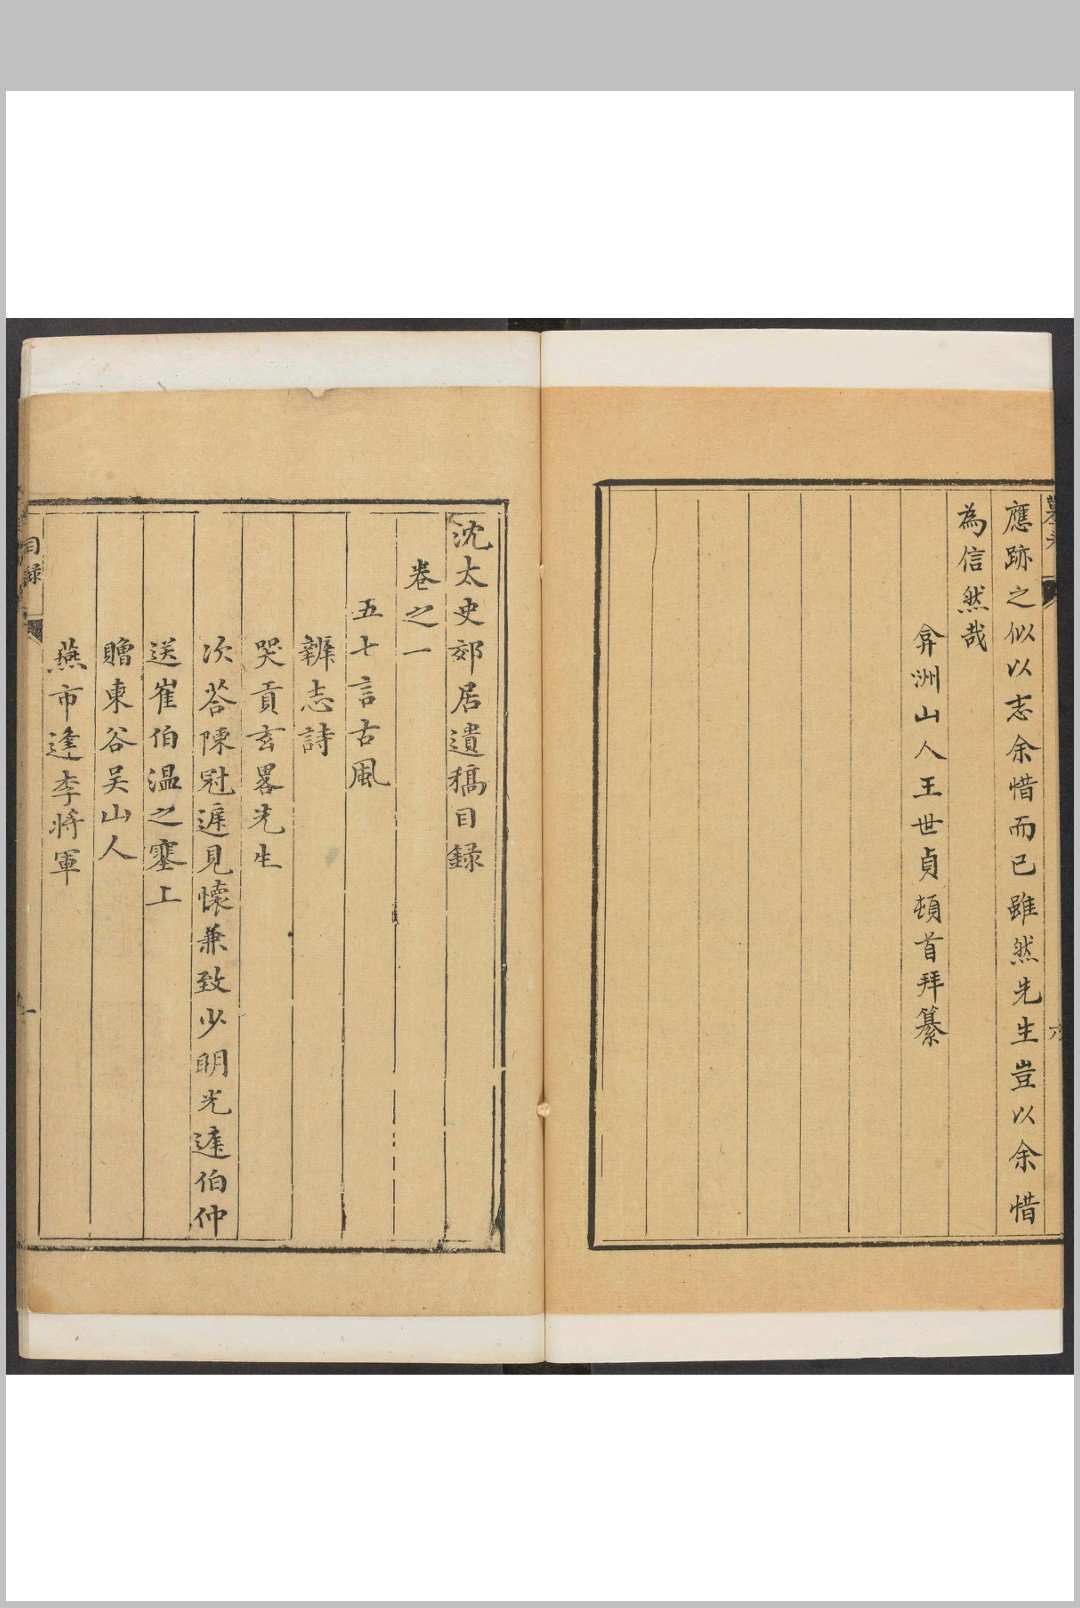 應跡之似以志余惜而已雖然先生豈以余惜
為信然哉
弇洲山人王世貞頓首拜纂
六
沈太史郊居遺稿目錄
卷之一
五七言古風
辯志詩
哭貢玄畧先生
次荅陳冠遲見懷兼致少明光達伯仲
送崔伯溫之塞上
贈東谷吴山人
燕市逢李將軍
目錄
一